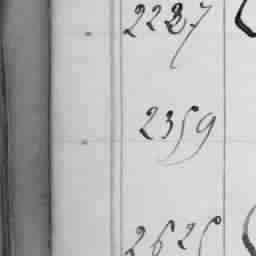 2227
2359
2625